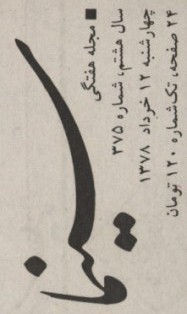 سینما
■ مجله هفتگی
سال هشتم، شماره ۳۷۵
چهارشنبه ۱۲ خرداد ۱۳۷۸
۲۴ صفحه، تکشماره ۱۲۰ تومان